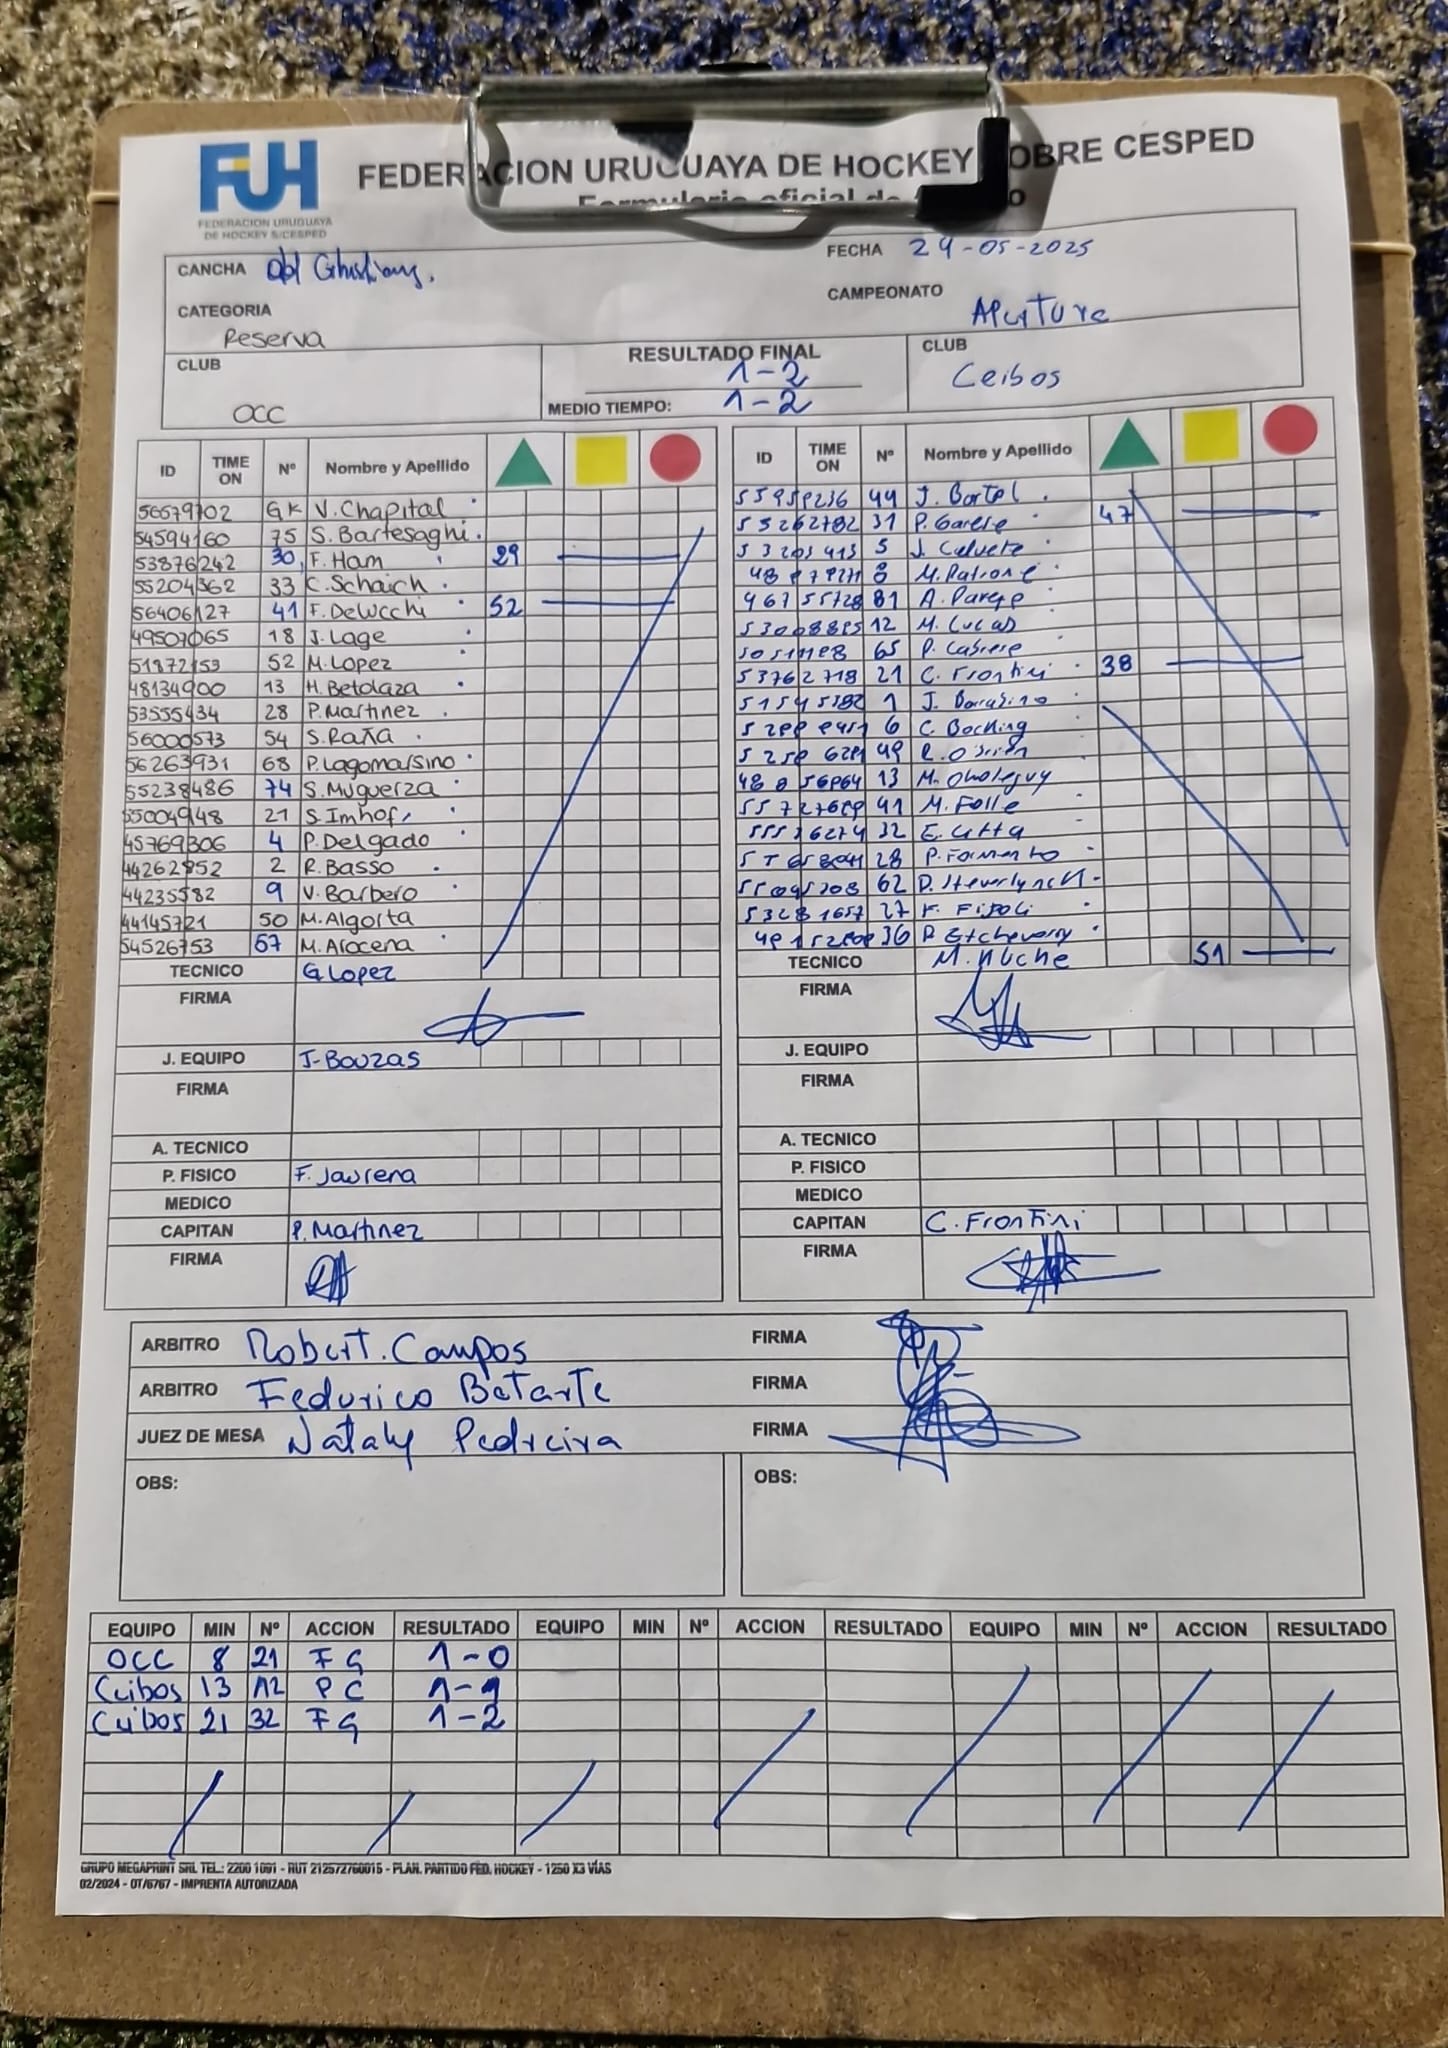 FUH
FEDERACION URUGUAYA
DE HOCKEY S/CESPED
FEDERACION URUGUAYA DE HOCKEY SOBRE CESPED
Formulario oficial de
CANCHA Old Christians.
FECHA 24-05-2025
CATEGORIA Reserva
CAMPEONATO Apertura
CLUB OCC
RESULTADO FINAL 1-2
MEDIO TIEMPO: 1-2
CLUB Ceibos
ID TIME ON Nº Nombre y Apellido
56579702 GK V. Chapital
54594160 75 S. Bartesaghi
53876242 30 F. Ham 29
55204362 33 C. Schaich
56406127 41 F. Delucchi 52
49507065 18 J. Lage
51872153 52 M. Lopez
48134900 13 H. Betolaza
53555434 28 P. Martinez
56000573 54 S. Raña
56263931 68 P. Lagomarsino
55238486 74 S. Muguerza
55004948 21 S. Imhof
45769306 4 P. Delgado
44262852 2 R. Basso
44235582 9 V. Barbero
44145721 50 M. Algorta
54526753 67 M. Arocena
TECNICO G. Lopez
FIRMA
J. EQUIPO J. Bouzas
FIRMA
A. TECNICO
P. FISICO F. Jaurena
MEDICO
CAPITAN P. Martinez
FIRMA
ID TIME ON Nº Nombre y Apellido
44 J. Bartol
55262782 31 P. Garese 47
5 J. Calvete
8 M. Patrone
46755728 81 A. Parese
12 M. Lucas
65 P. Cabrese
53762718 21 C. Frontini 38
1 J.
6 C. Bocking
49
13 M.
41 M. Folle
32 E. Citta
28 P. Formento
62
27 F. Fipoli
36 P. Etcheverry
TECNICO M. Huche 51
FIRMA
J. EQUIPO
FIRMA
A. TECNICO
P. FISICO
MEDICO
CAPITAN C. Frontini
FIRMA
ARBITRO Robert. Campos FIRMA
ARBITRO Federico Batarte FIRMA
JUEZ DE MESA Nataly Pedreira FIRMA
OBS: OBS:
EQUIPO MIN Nº ACCION RESULTADO EQUIPO MIN Nº ACCION RESULTADO EQUIPO MIN Nº ACCION RESULTADO
OCC 8 21 FG 1-0
Ceibos 13 12 PC 1-1
Ceibos 21 32 FG 1-2
GRUPO MEGAPRINT SRL TEL.: 2200 1091 - RUT 212572760015 - PLAN. PARTIDO FED. HOCKEY - 1250 X3 VÍAS
02/2024 - OT/6767 - IMPRENTA AUTORIZADA